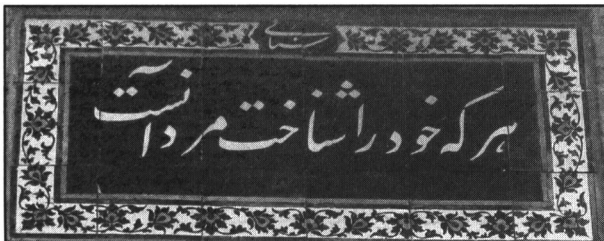 سنایی
هر که خود را شناخت مرد آنست